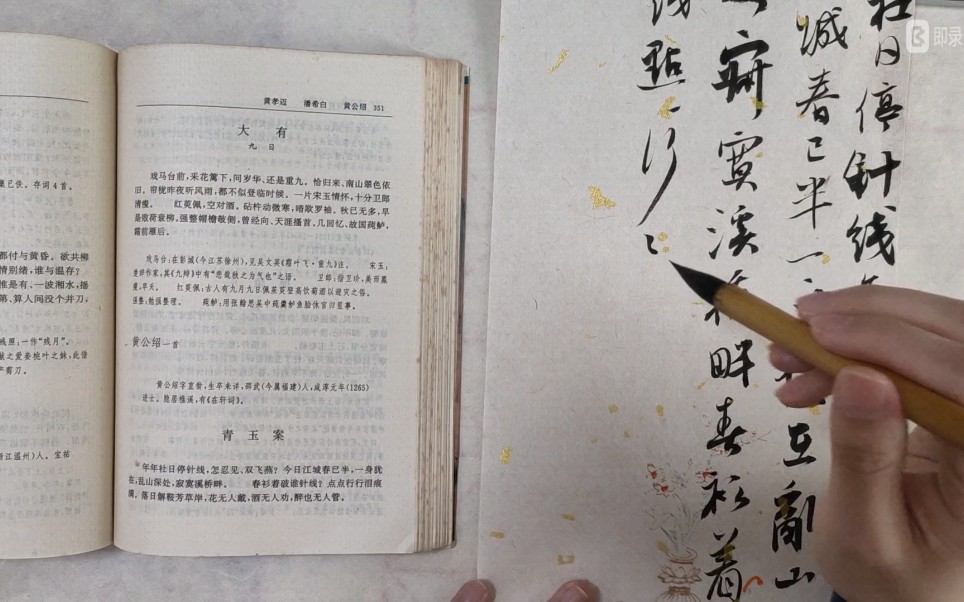 都付与黄昏。欲共柳
情别绪,谁与温存?
惟是有、一波湘水,摇
第、算人间没个并刀,
残照:一作“残月”。
献之爱妾桃叶之妹,此借
产剪刀。
江温州)人。宝祐
黄孝迈 潘希白 黄公绍 351
大有
九日
戏马台前,采花篱下,问岁华、还是重九。恰归来、南山翠色依
旧。帘栊昨夜听风雨,都不似登临时候。一片宋玉情怀,十分卫郎
清瘦。 红萸佩,空对酒。砧杵动微寒,暗欺罗袖。秋已无多,早
是败荷衰柳。强整帽檐欹侧,曾经向、天涯搔首。几回忆、故国莼鲈,
霜前雁后。
戏马台:在彭城(今江苏徐州),见吴文英《霜叶飞·重九》注。 宋玉:
楚辞作家,其《九辩》中有“悲哉秋之为气也”之语。 卫郎:指卫玠,美而羸
瘦,早夭。 红萸佩:古人有九月九日佩茱萸登高饮菊酒以避灾之俗。
强整:勉强整理。 莼鲈:用张翰思吴中莼羹鲈鱼脍休官归里事。
黄公绍一首
黄公绍字直翁,生卒未详,邵武(今属福建)人,咸淳元年(1265)
进士。隐居樵溪,有《在轩词》。
青玉案
年年社日停针线,怎忍见、双飞燕?今日江城春已半,一身犹
在,乱山深处,寂寞溪桥畔。 春衫着破谁针线?点点行行泪痕
满。落日解鞍芳草岸,花无人戴,酒无人劝,醉也无人管。
社日停针线
城春已半一 在亂山
寂寞溪桥畔春衫着
线點〻行〻
即录